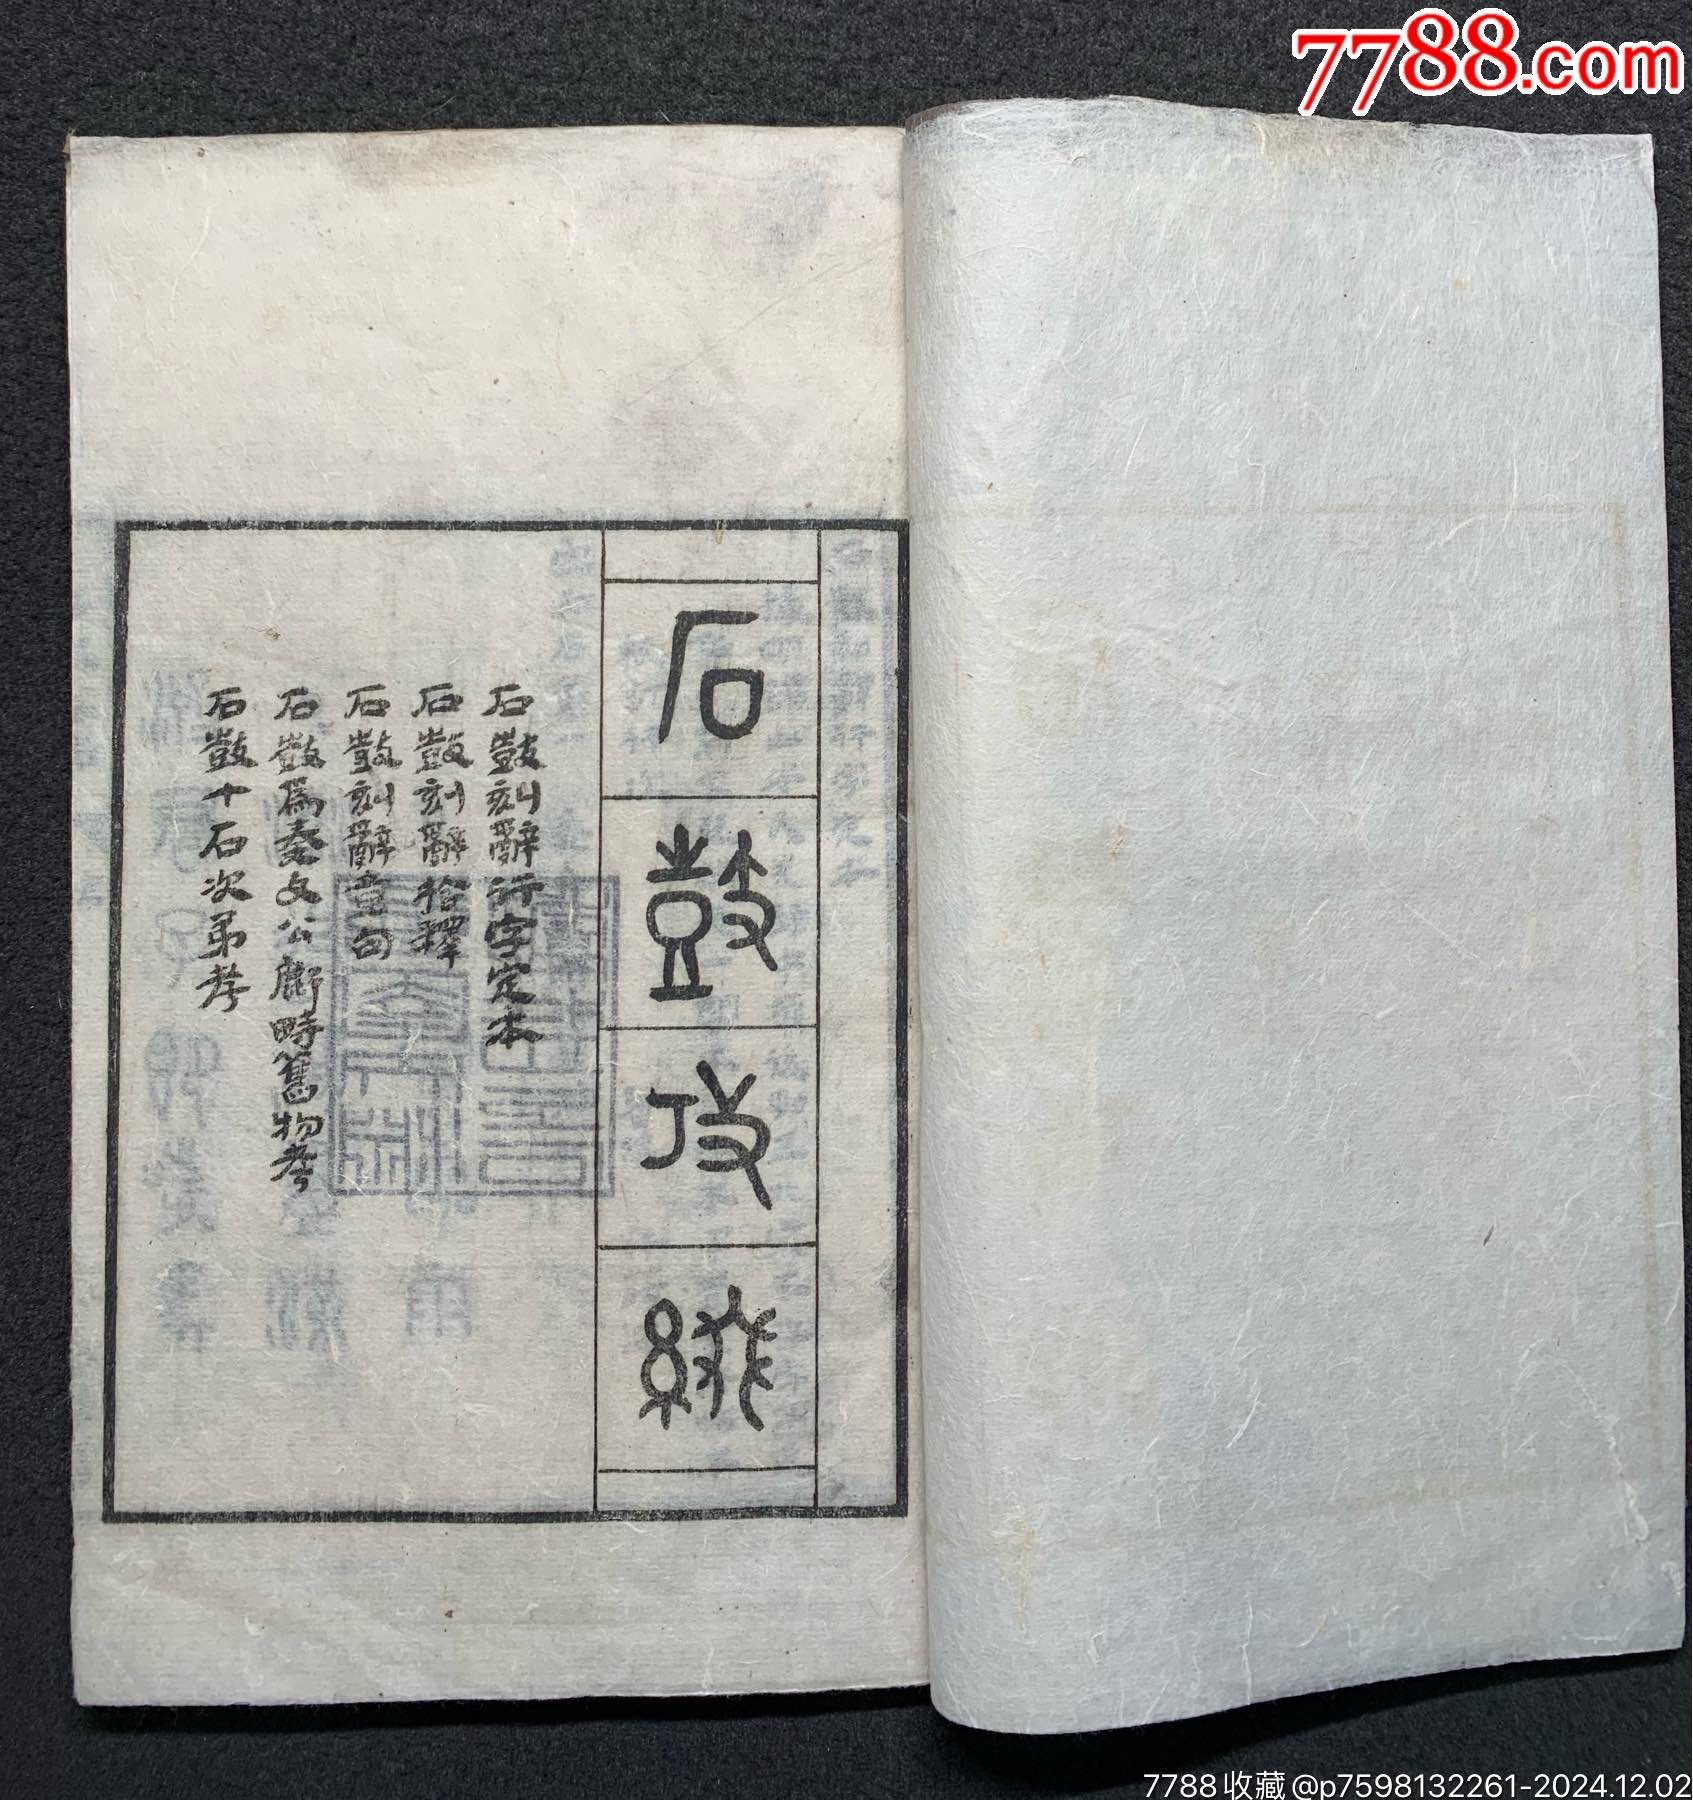 7788.com
石鼓攷綴
石鼓刻辭行字定本
石鼓刻辭拾釋
石鼓刻辭章句
石鼓爲秦文公鄜畤舊物考
石鼓十石次弟考
7788收藏@p7598132261-2024.12.02